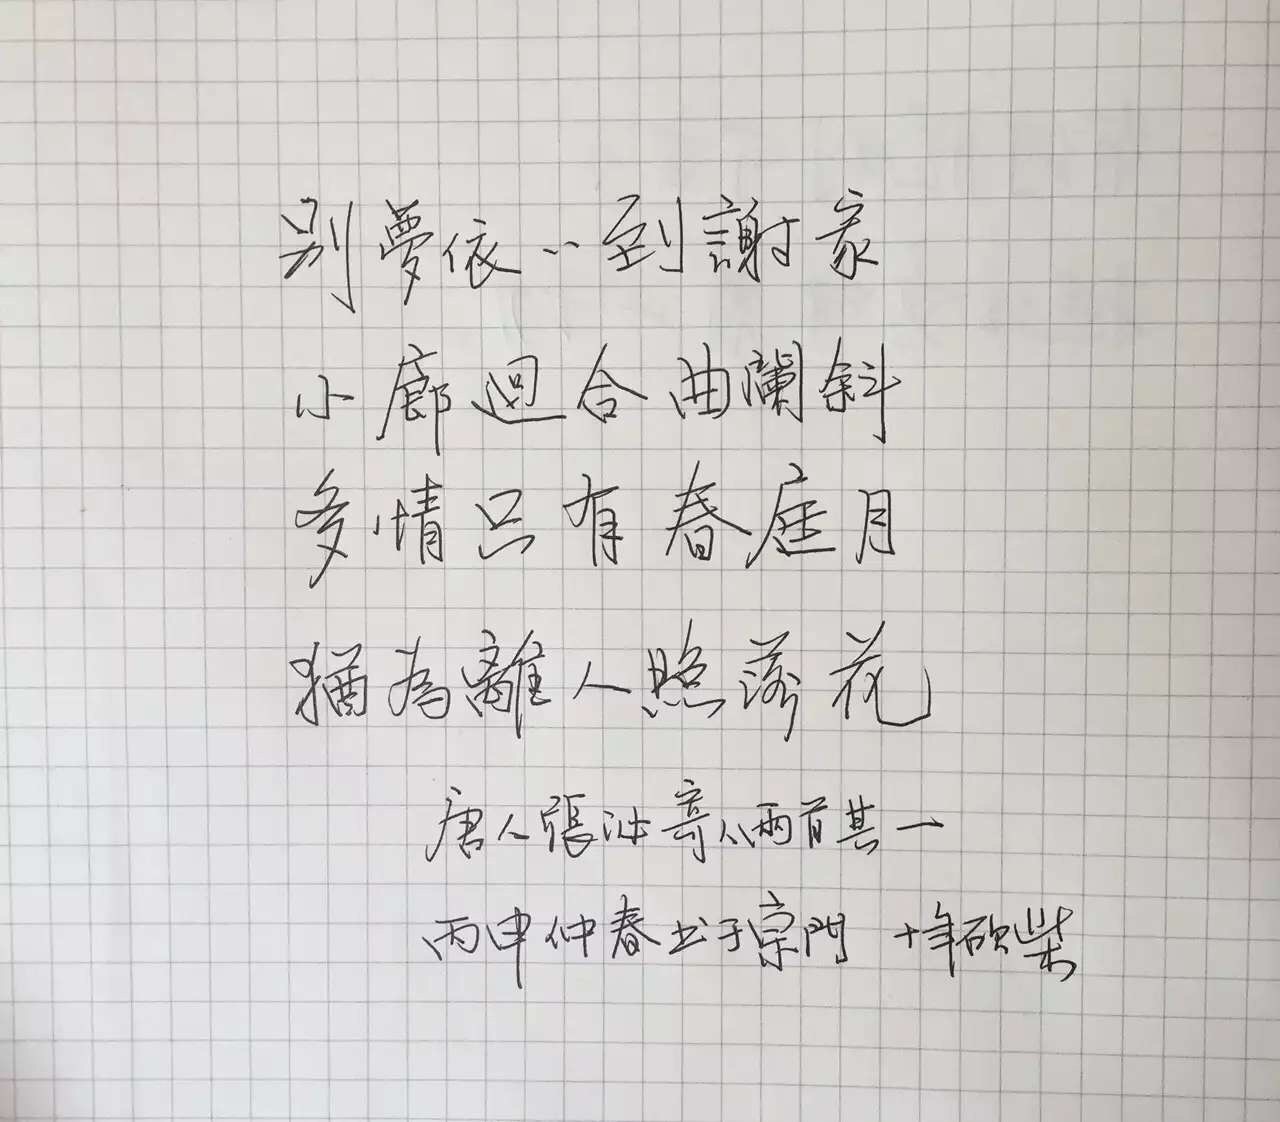 别夢依〻到謝家
小廊迴合曲闌斜
多情只有春庭月
猶為離人照落花
唐人張泌寄人兩首其一
丙申仲春书于宗門 十年砍柴